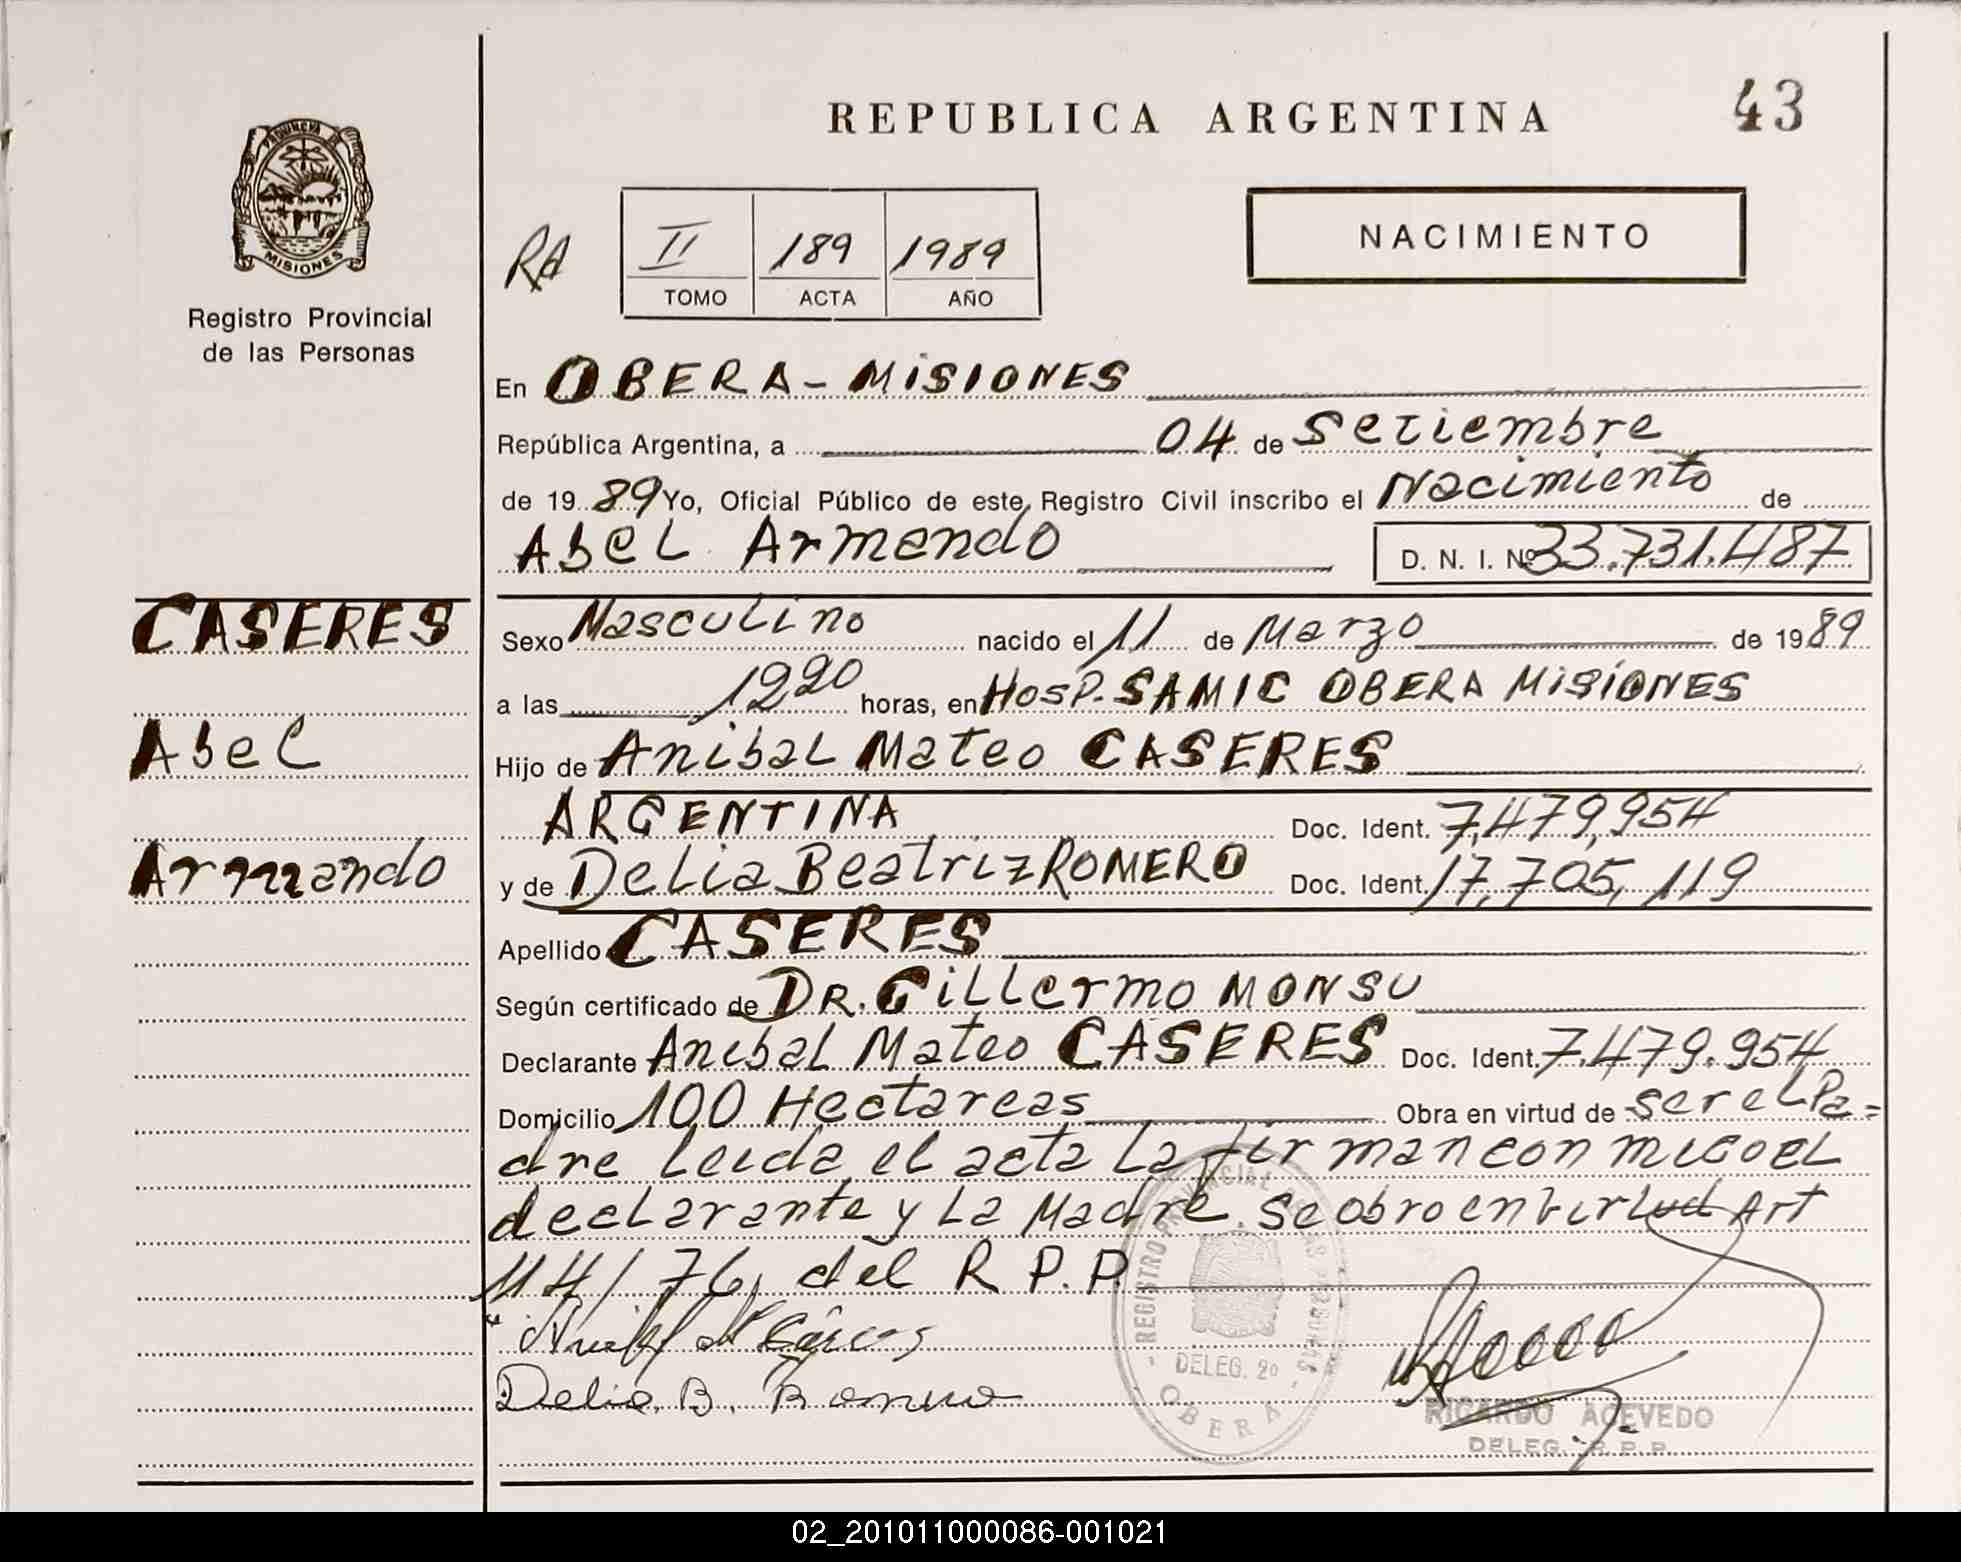 REPUBLICA ARGENTINA
43
PROVINCIA DE
MISIONES
Registro Provincial
de las Personas
RA
II 189 1989
TOMO ACTA AÑO
NACIMIENTO
En OBERA - MISIONES
República Argentina, a 04 de Setiembre
de 1989 Yo, Oficial Público de este Registro Civil inscribo el Nacimiento de
Abel Armando D. N. I. Nº 33.731.487
CASERES
Abel
Armando
Sexo Masculino nacido el 11 de Marzo de 1989
a las 1220 horas, en Hosp. SAMIC OBERA MISIONES
Hijo de Anibal Mateo CASERES
ARGENTINA Doc. Ident. 7,479,954
y de Delia Beatriz ROMERO Doc. Ident. 17.705,119
Apellido CASERES
Según certificado de DR. Gillermo MONSU
Declarante Anibal Mateo CASERES Doc. Ident. 7.479.954
Domicilio 100 Hectareas Obra en virtud de ser el Pa=
dre leida el acta la firman con migo el
declarante y la Madre. Se obro en birtud Art
114/76, del R P.P.
Delia. B. Romero
REGISTRO PROVINCIAL DE LAS PERSONAS
DELEG. 2º
OBERA
RICARDO ACEVEDO
DELEG. R.P.P.
02_201011000086-001021